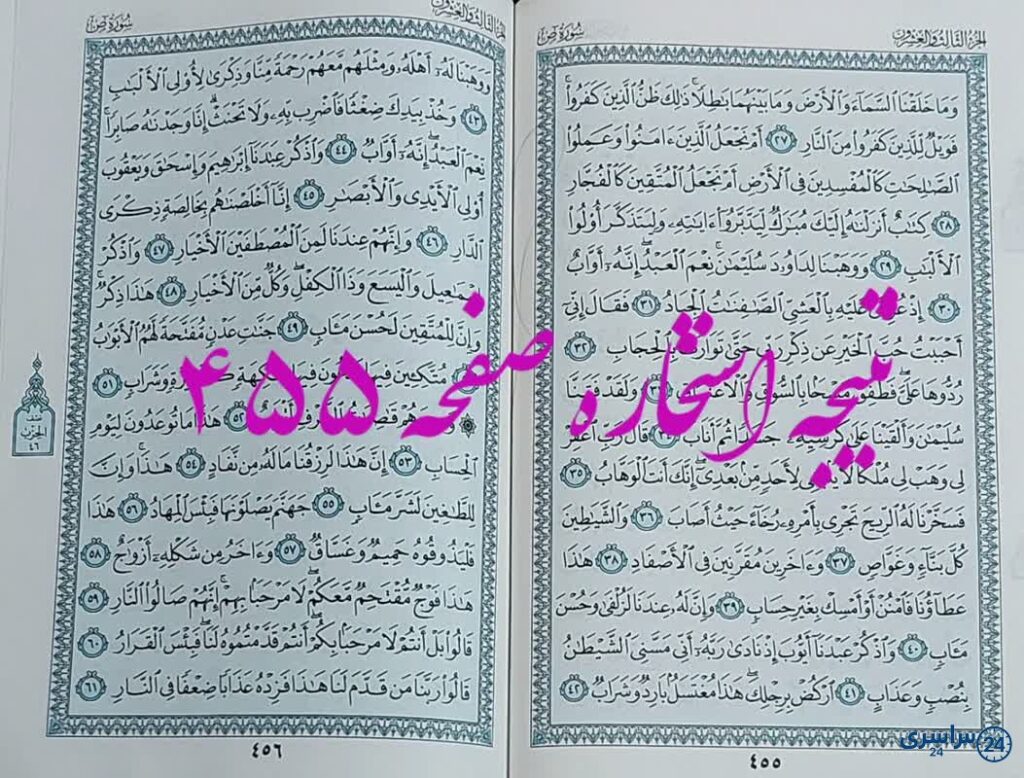 الجزء الثالث والعشرون
سورة ص
وَمَا خَلَقْنَا ٱلسَّمَآءَ وَٱلْأَرْضَ وَمَا بَيْنَهُمَا بَٰطِلًا ذَٰلِكَ ظَنُّ ٱلَّذِينَ كَفَرُوا۟
فَوَيْلٌ لِّلَّذِينَ كَفَرُوا۟ مِنَ ٱلنَّارِ ٢٧ أَمْ نَجْعَلُ ٱلَّذِينَ ءَامَنُوا۟ وَعَمِلُوا۟
ٱلصَّٰلِحَٰتِ كَٱلْمُفْسِدِينَ فِى ٱلْأَرْضِ أَمْ نَجْعَلُ ٱلْمُتَّقِينَ كَٱلْفُجَّارِ
٢٨ كِتَٰبٌ أَنزَلْنَٰهُ إِلَيْكَ مُبَٰرَكٌ لِّيَدَّبَّرُوٓا۟ ءَايَٰتِهِۦ وَلِيَتَذَكَّرَ أُو۟لُوا۟
ٱلْأَلْبَٰبِ ٢٩ وَوَهَبْنَا لِدَاوُۥدَ سُلَيْمَٰنَ نِعْمَ ٱلْعَبْدُ إِنَّهُۥٓ أَوَّابٌ
٣٠ إِذْ عَلَيْهِ بِٱلْعَشِىِّ ٱلصَّٰفِنَٰتُ ٱلْجِيَادُ ٣١ فَقَالَ إِنِّىٓ
أَحْبَبْتُ حُبَّ ٱلْخَيْرِ عَن ذِكْرِ رَبِّى حَتَّىٰ تَوَارَتْ بِٱلْحِجَابِ ٣٢
رُدُّوهَا عَلَىَّ فَطَفِقَ مَسْحًۢا بِٱلسُّوقِ وَٱلْأَعْنَاقِ ٣٣ وَلَقَدْ فَتَنَّا
سُلَيْمَٰنَ وَأَلْقَيْنَا عَلَىٰ كُرْسِيِّهِۦ جَسَدًا ثُمَّ أَنَابَ ٣٤ قَالَ رَبِّ ٱغْفِرْ
لِى وَهَبْ لِى مُلْكًا لَّا لِأَحَدٍ مِّنۢ بَعْدِىٓ إِنَّكَ أَنتَ ٱلْوَهَّابُ ٣٥
فَسَخَّرْنَا لَهُ ٱلرِّيحَ تَجْرِى بِأَمْرِهِۦ رُخَآءً حَيْثُ أَصَابَ ٣٦ وَٱلشَّيَٰطِينَ
كُلَّ بَنَّآءٍ وَغَوَّاصٍ ٣٧ وَءَاخَرِينَ مُقَرَّنِينَ فِى ٱلْأَصْفَادِ ٣٨ هَٰذَا
عَطَآؤُنَا فَٱمْنُنْ أَوْ أَمْسِكْ بِغَيْرِ حِسَابٍ ٣٩ وَإِنَّ لَهُۥ عِندَنَا لَزُلْفَىٰ وَحُسْنَ
مَـَٔابٍ ٤٠ وَٱذْكُرْ عَبْدَنَآ أَيُّوبَ إِذْ نَادَىٰ رَبَّهُۥٓ أَنِّى مَسَّنِىَ ٱلشَّيْطَٰنُ
بِنُصْبٍ وَعَذَابٍ ٤١ ٱرْكُضْ بِرِجْلِكَ هَٰذَا مُغْتَسَلٌۢ بَارِدٌ وَشَرَابٌ ٤٢
٤٥٥
الجزء الثالث والعشرون
سورة ص
وَوَهَبْنَا لَهُۥٓ أَهْلَهُۥ وَمِثْلَهُم مَّعَهُمْ رَحْمَةً مِّنَّا وَذِكْرَىٰ لِأُو۟لِى ٱلْأَلْبَٰبِ
٤٣ وَخُذْ بِيَدِكَ ضِغْثًا فَٱضْرِب بِّهِۦ وَلَا تَحْنَثْ إِنَّا وَجَدْنَٰهُ صَابِرًا
نِّعْمَ ٱلْعَبْدُ إِنَّهُۥٓ أَوَّابٌ ٤٤ وَٱذْكُرْ عِبَٰدَنَآ إِبْرَٰهِيمَ وَإِسْحَٰقَ وَيَعْقُوبَ
أُو۟لِى ٱلْأَيْدِى وَٱلْأَبْصَٰرِ ٤٥ إِنَّآ أَخْلَصْنَٰهُم بِخَالِصَةٍ ذِكْرَى
ٱلدَّارِ ٤٦ وَإِنَّهُمْ عِندَنَا لَمِنَ ٱلْمُصْطَفَيْنَ ٱلْأَخْيَارِ ٤٧ وَٱذْكُرْ
إِسْمَٰعِيلَ وَٱلْيَسَعَ وَذَا ٱلْكِفْلِ وَكُلٌّ مِّنَ ٱلْأَخْيَارِ ٤٨ هَٰذَا ذِكْرٌ
وَإِنَّ لِلْمُتَّقِينَ لَحُسْنَ مَـَٔابٍ ٤٩ جَنَّٰتِ عَدْنٍ مُّفَتَّحَةً لَّهُمُ ٱلْأَبْوَٰبُ
مُتَّكِـِٔينَ فِيهَا يَدْعُونَ فِيهَا بِفَٰكِهَةٍ كَثِيرَةٍ وَشَرَابٍ ٥١
وَعِندَهُمْ قَٰصِرَٰتُ ٱلطَّرْفِ أَتْرَابٌ ٥٢ هَٰذَا مَا تُوعَدُونَ لِيَوْمِ
ٱلْحِسَابِ ٥٣ إِنَّ هَٰذَا لَرِزْقُنَا مَا لَهُۥ مِن نَّفَادٍ ٥٤ هَٰذَا وَإِنَّ
لِلطَّٰغِينَ لَشَرَّ مَـَٔابٍ ٥٥ جَهَنَّمَ يَصْلَوْنَهَا فَبِئْسَ ٱلْمِهَادُ ٥٦ هَٰذَا
فَلْيَذُوقُوهُ حَمِيمٌ وَغَسَّاقٌ ٥٧ وَءَاخَرُ مِن شَكْلِهِۦٓ أَزْوَٰجٌ ٥٨
هَٰذَا فَوْجٌ مُّقْتَحِمٌ مَّعَكُمْ لَا مَرْحَبًۢا بِهِمْ إِنَّهُمْ صَالُوا۟ ٱلنَّارِ ٥٩
قَالُوا۟ بَلْ أَنتُمْ لَا مَرْحَبًۢا بِكُمْ أَنتُمْ قَدَّمْتُمُوهُ لَنَا فَبِئْسَ ٱلْقَرَارُ ٦٠
قَالُوا۟ رَبَّنَا مَن قَدَّمَ لَنَا هَٰذَا فَزِدْهُ عَذَابًا ضِعْفًا فِى ٱلنَّارِ ٦١
٤٥٦
نصف
الحزب
٤٦
نتیجه استخاره صفحه ۴۵۵
سراسری
24
24